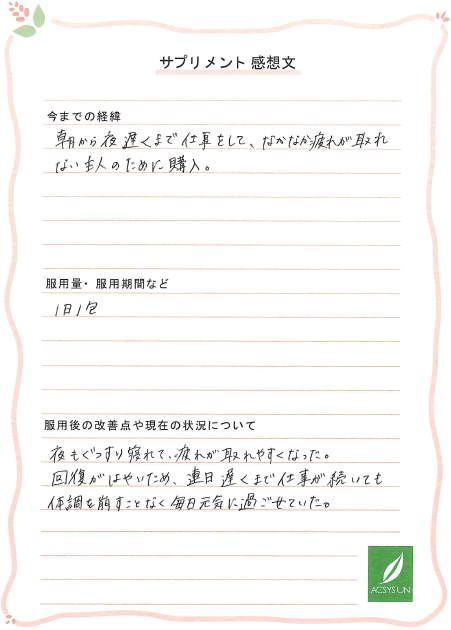 サプリメント 感想文
今までの経緯
朝から夜遅くまで仕事をして、なかなか疲れが取れ
ない主人のために購入。
服用量・服用期間など
1日1包
服用後の改善点や現在の状況について
夜もぐっすり寝れて、疲れが取れやすくなった。
回復がはやいため、連日遅くまで仕事が続いても
体調を崩すことなく毎日元気に過ごせていた。
ACSYSUN